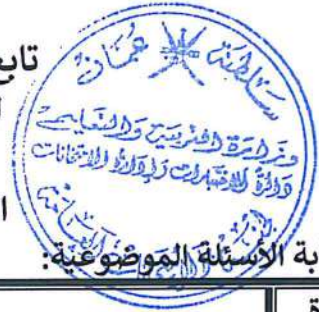 تابع
سلطنة عُمان
وزارة التربية والتعليم
دائرة الاختبارات وإدارة الامتحانات
ا
بة الأسئلة الموضوعية:
ة